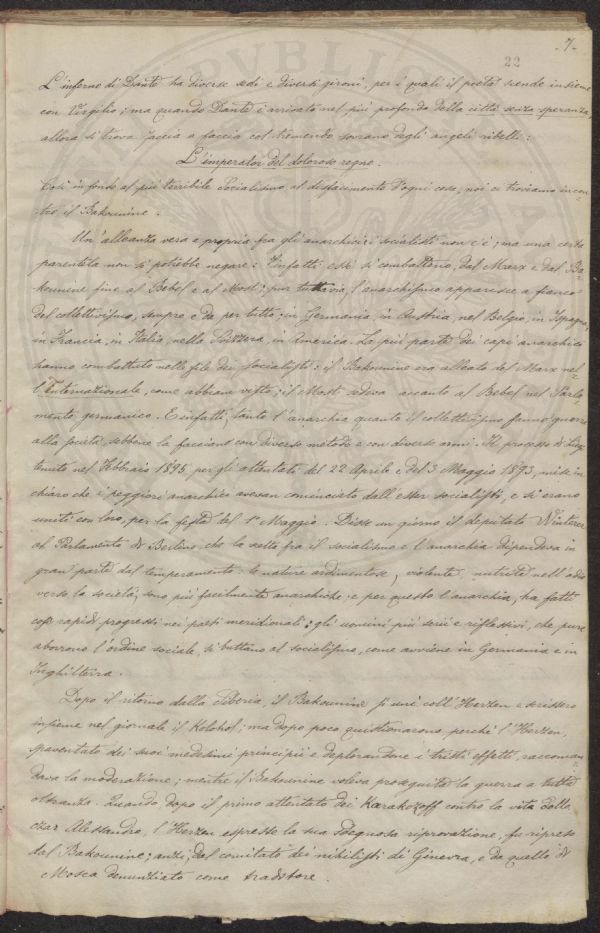 - 7 -
22
L'inferno di Dante ha diverse sedi e diversi gironi, per i quali il poeta scende insieme
con Virgilio; ma quando Dante è arrivato nel più profondo della città senza speranza,
allora si trova faccia a faccia col tremendo sovrano degli angeli ribelli:
L'imperator del doloroso regno.
Così in fondo al più terribile Socialismo, al disfacimento d'ogni cosa, noi ci troviamo incon-
tro il Bakounine.
Un'alleanza vera e propria fra gli anarchici e i socialisti non c'è; ma una certa
parentela non si potrebbe negare: Infatti essi si combattono, dal Marx e dal Ba-
kounine fino al Bebel e al Most; pur tuttavia, l'anarchismo apparisce a fianco
del collettivismo, sempre e da per tutto; in Germania, in Austria, nel Belgio, in Ispagna,
in Francia, in Italia, nella Svizzera, in America. La più parte dei capi anarchici
hanno combattuto nelle file dei socialisti: il Bakounine era alleato del Marx nel-
l'Internazionale, come abbiam visto; il Most sedeva accanto al Bebel nel Parla-
mento germanico. E infatti, tanto l'anarchia quanto il collettivismo fanno guerra
alla società, sebbene la facciano con diverso metodo e con diverse armi. Il processo di Liegi
tenuto nel Febbraio 1895 per gli attentati del 22 Aprile e del 3 Maggio 1893, mise in
chiaro che i peggiori anarchici avevan cominciato dall'esser socialisti, e si erano
uniti con loro, per la festa del 1° Maggio. Disse un giorno il deputato Winterer
al Parlamento di Berlino, che la scelta fra il socialismo e l'anarchia dipendeva in
gran parte dal temperamento: le nature ardimentose, violente, nutrite nell'odio
verso la società, sono più facilmente anarchiche; e per questo l'anarchia, ha fatti
così rapidi progressi nei paesi meridionali; gli uomini più serii e riflessivi, che pure
aborrono l'ordine sociale, si buttano al socialismo, come avviene in Germania e in
Inghilterra.
Dopo il ritorno dalla Siberia, il Bakounine si unì coll'Herzen e scrissero
insieme nel giornale il Kolokol; ma dopo poco questionarono, perchè l'Herzen,
spaventato dei suoi medesimi principii e deplorandone i tristi effetti, raccoman-
dava la moderazione; mentre il Bakounine voleva proseguita la guerra a tutta
oltranza. Quando dopo il primo attentato dei Karakozoff contro la vita dello
czar Alessandro, l'Herzen espresse la sua sdegnosa riprovazione, fu ripreso
dal Bakounine; anzi, dal comitato dei nihilisti di Ginevra, e da quello di
Mosca denunziato come traditore.